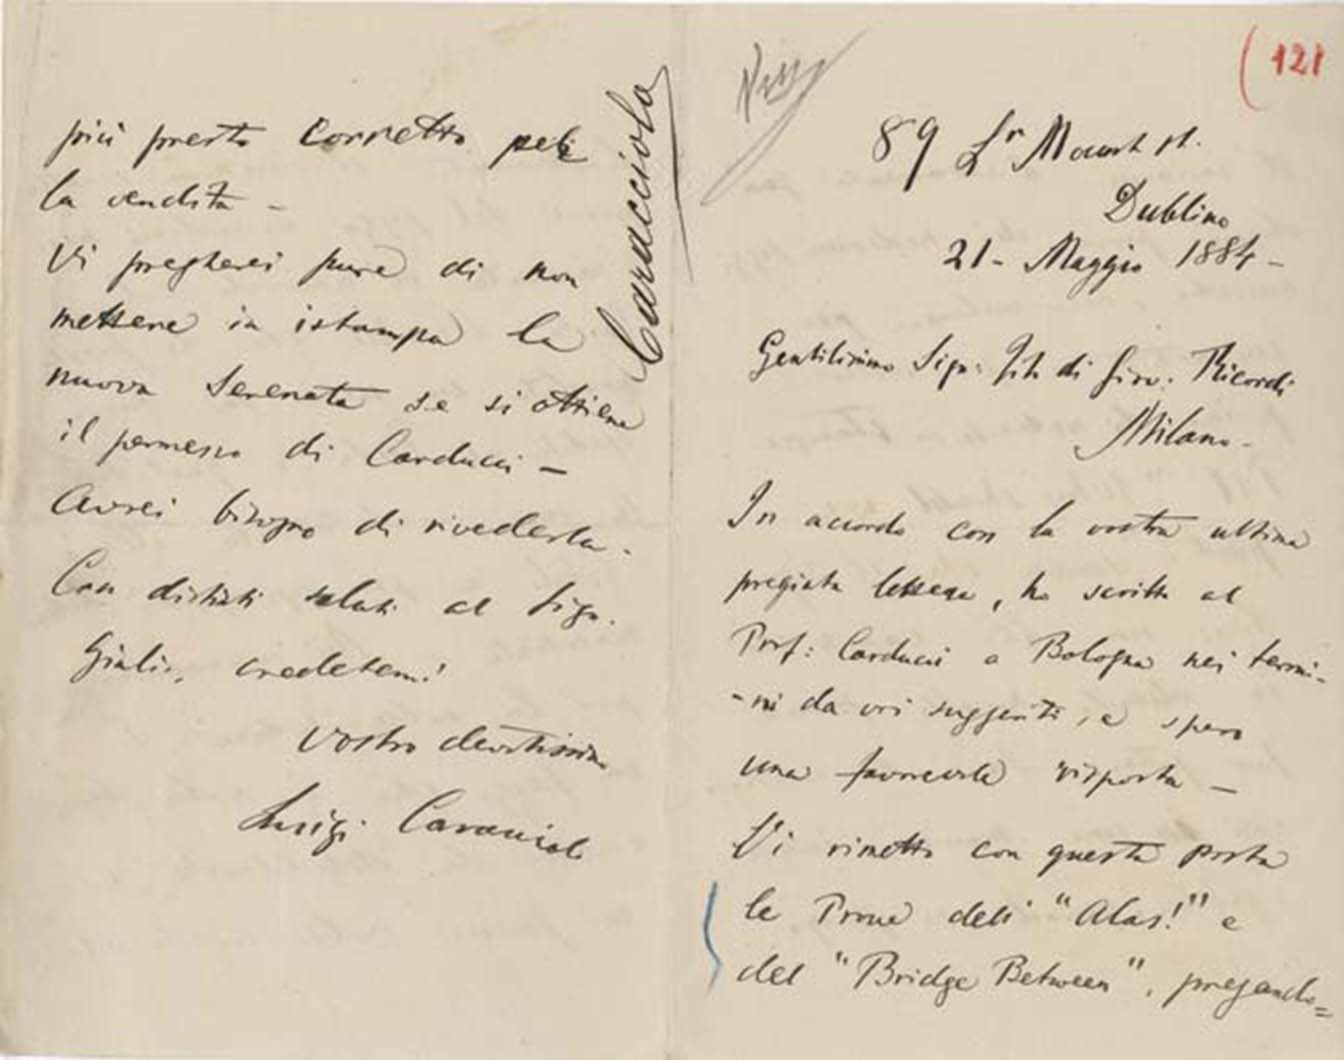 (121
89 Lr Mount st.
Dublino
21 - Maggio 1884 -
Gentilissimo Sign: Tito di Giov: Ricordi
Milano -
In accordo con la vostra ultima
pregiata lettera, ho scritto al
Prof: Carducci a Bologna nei termi-
-ni da voi suggeriti, e spero
una favorevole risposta -
Vi rimetto con questa posta
le Prove dell' "Alas!" e
del "Bridge Between", pregando=
più presto corretto per
la vendita -
Vi pregherei pure di non
mettere in istampa la
nuova Serenata se si ottiene
il permesso di Carducci -
Avrei bisogno di rivederla -
Con distinti saluti al Sign.
Giulio, credetemi
Vostro devotissimo
Luigi Caracciolo
Caracciolo